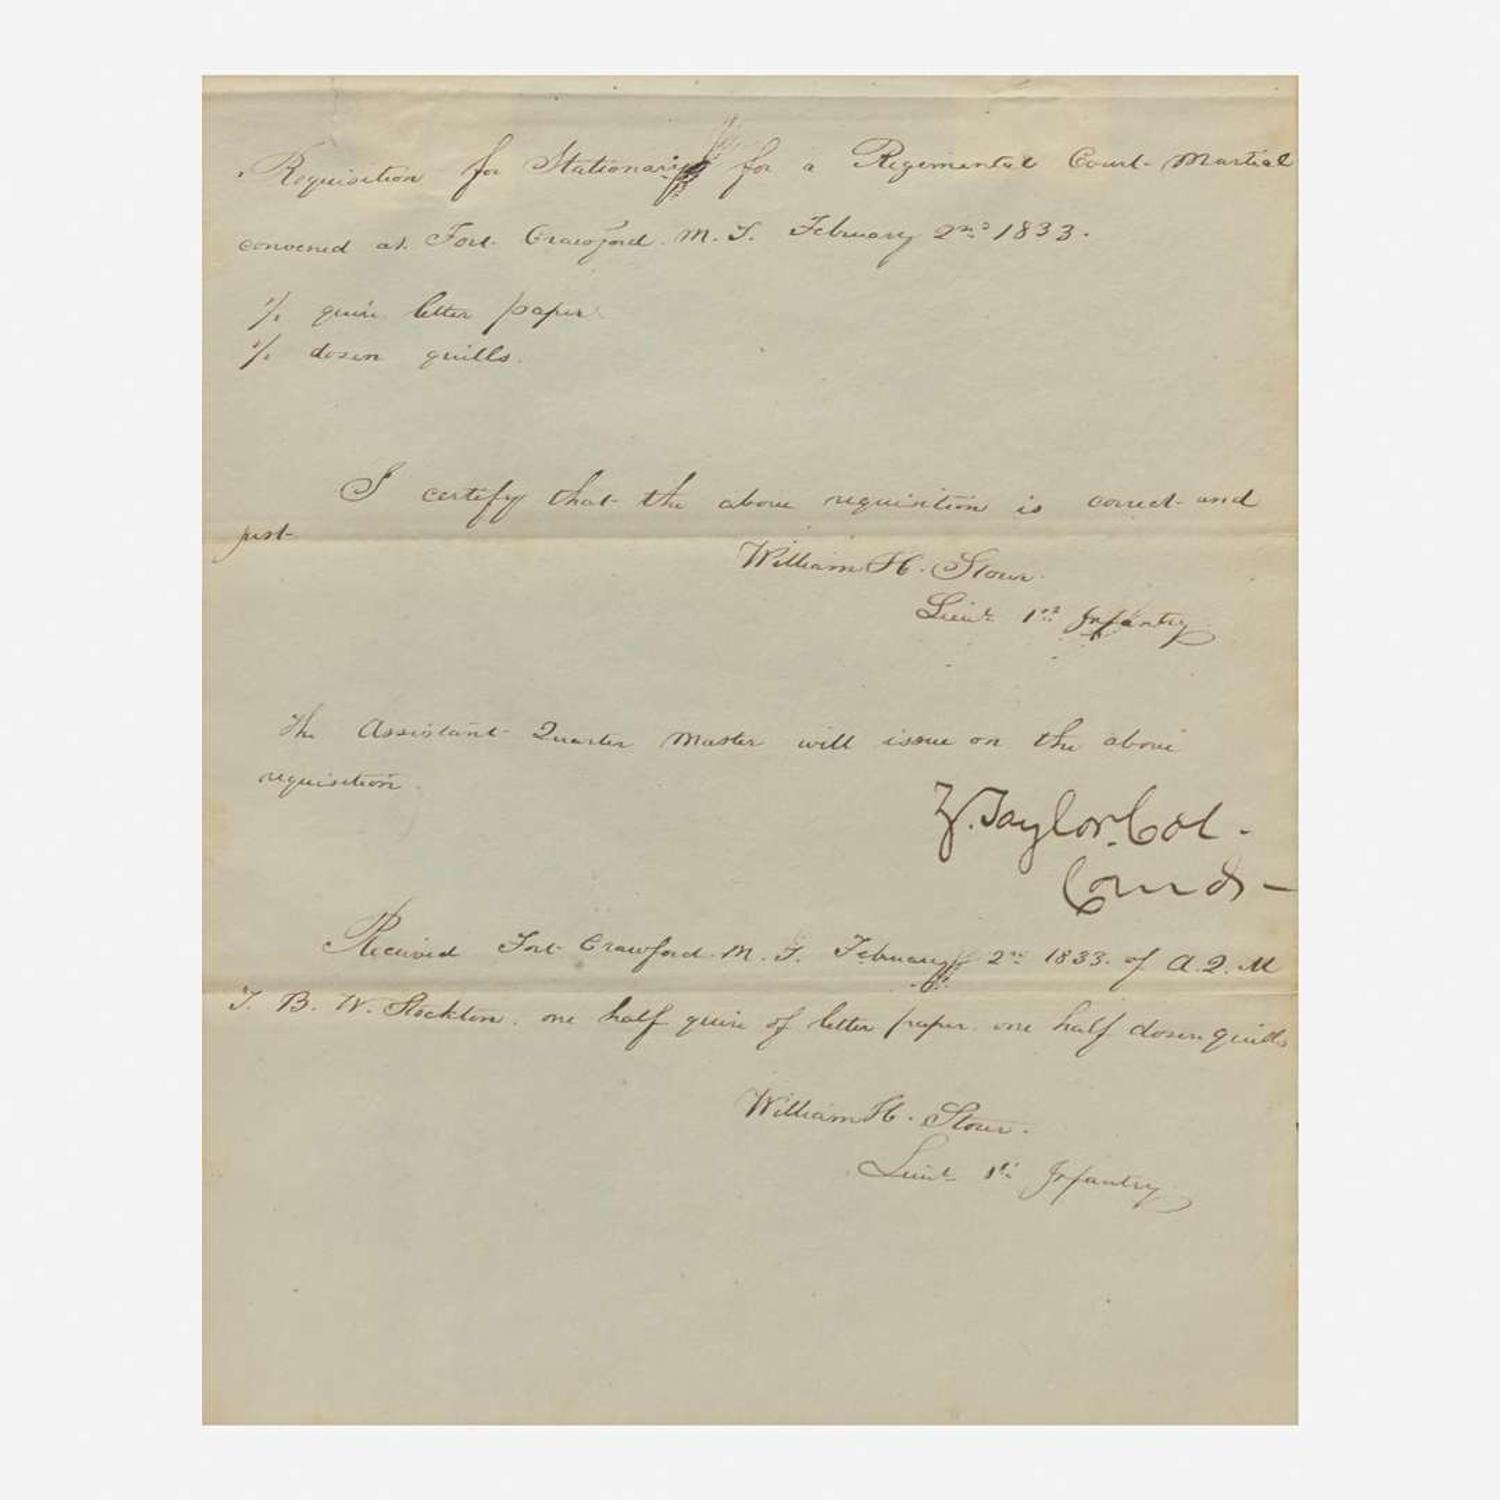 Requisition for Stationary for a Regimental Court-Martial
convened at Fort Crawford M. T. February 2nd 1833.
1/2 quire letter paper
1/2 dozen quills.
I certify that the above requisition is correct and
just
William H. Storer
Lieut 1st Infantry
The Assistant Quarter Master will issue on the above
requisition.
Z. Taylor Col.
Comdr
Received Fort Crawford M. T. February 2nd 1833. of A. Q. M
T. B. W. Stockton. one half quire of letter paper one half dozen quills
William H. Storer.
Lieut 1st Infantry